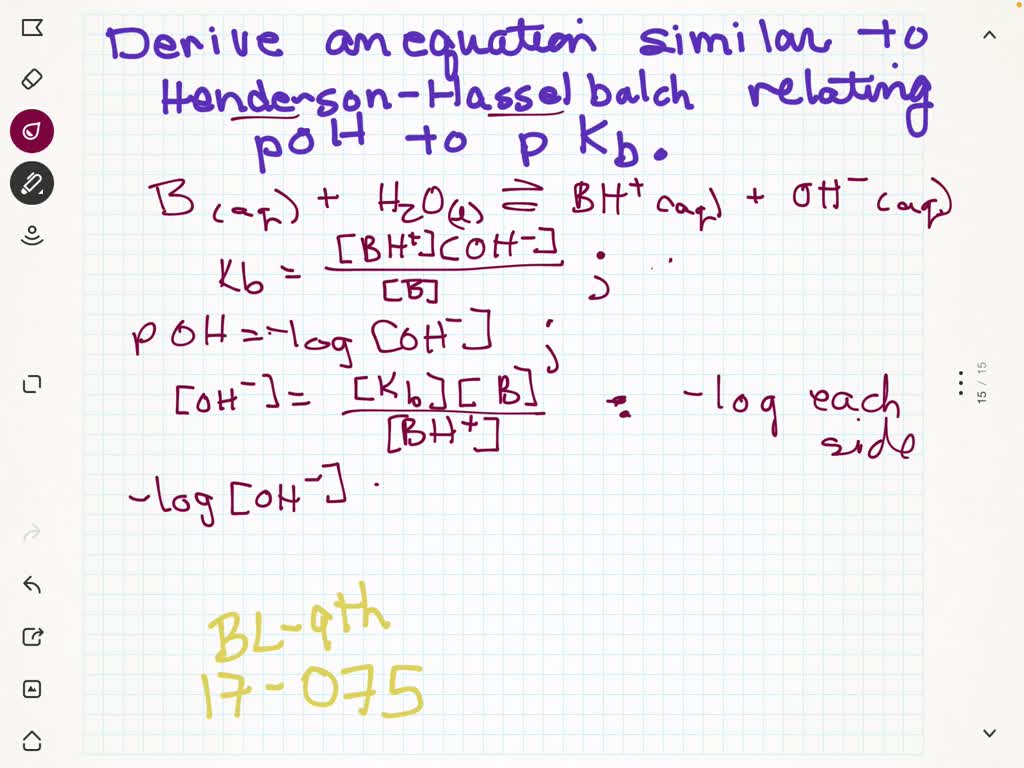 Derive an equation similar to
Henderson-Hasselbalch relating
pOH to pKb.
B(aq) + H2O(l) ⇌ BH⁺(aq) + OH⁻(aq)
Kb = [BH⁺][OH⁻] / [B] ;
pOH = -log [OH⁻] ;
[OH⁻] = [Kb][B] / [BH⁺] : -log each side
-log [OH⁻]
BL-9th
17-075
15 / 15